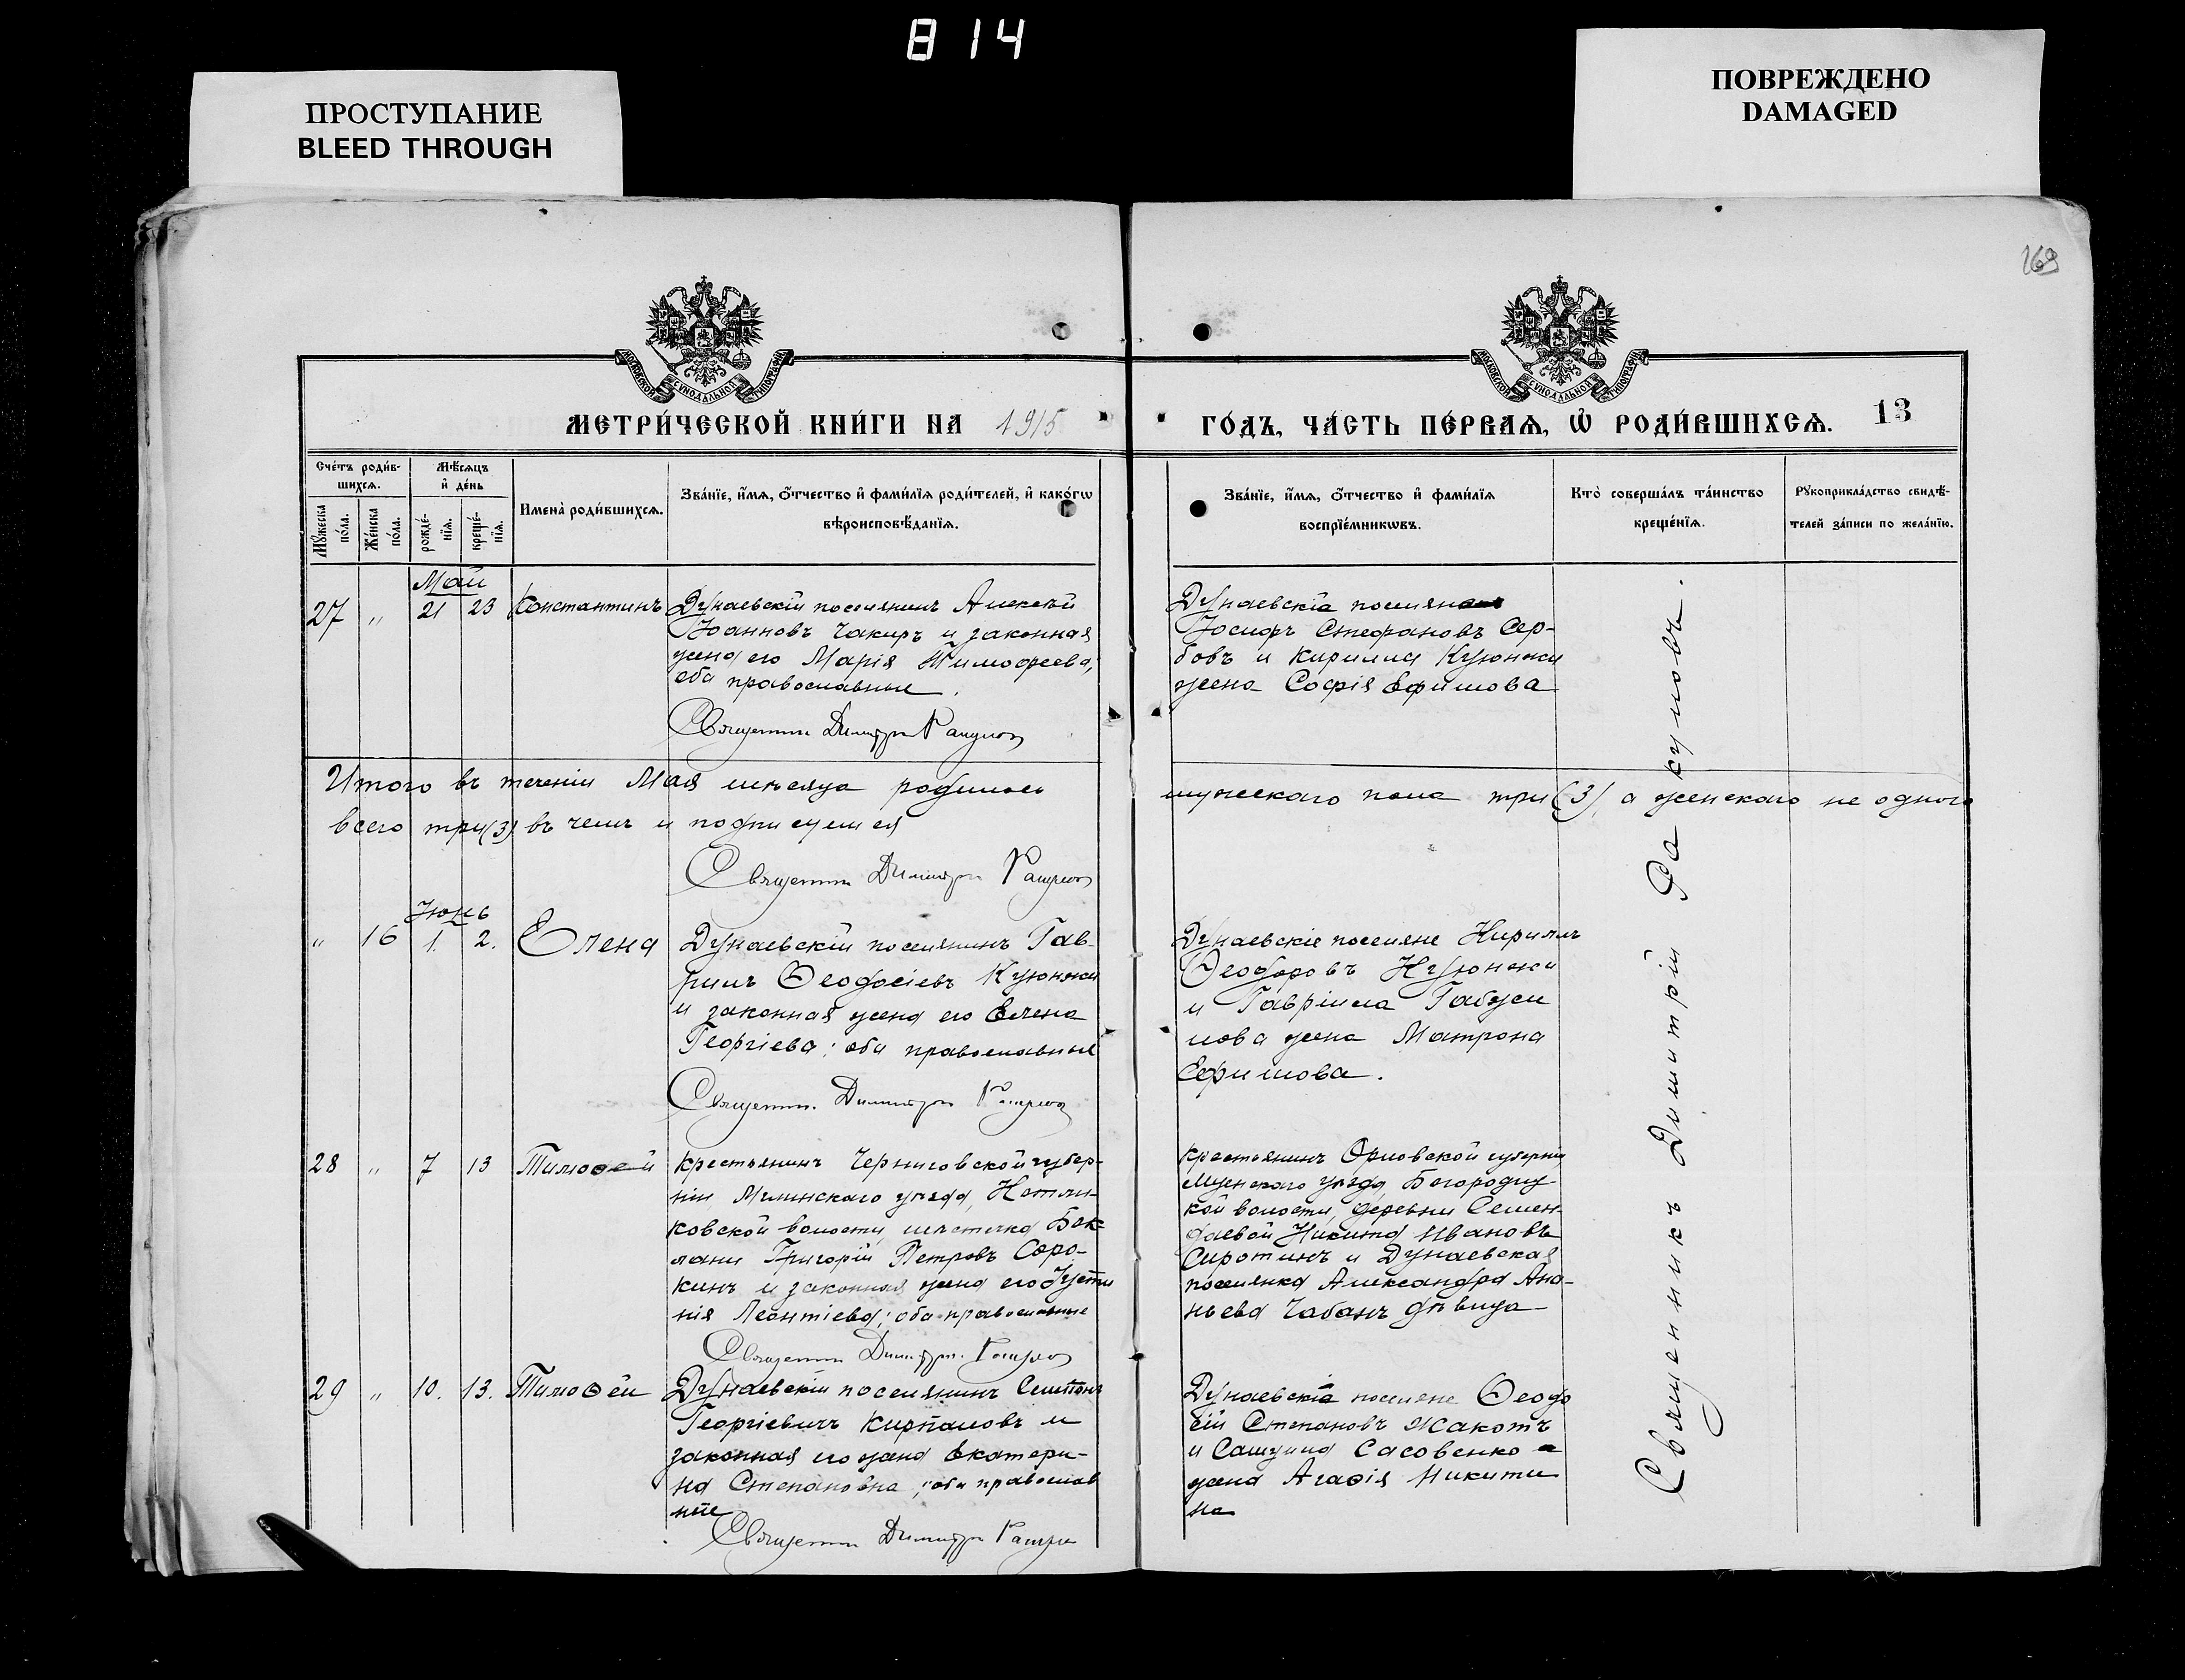 814
ПРОСТУПАНИЕ
BLEED THROUGH
ПОВРЕЖДЕНО
DAMAGED
169
МОСКОВСКОЙ СѴНОДАЛЬНОЙ ТИПОГРАФІИ
МОСКОВСКОЙ СѴНОДАЛЬНОЙ ТИПОГРАФІИ
МЕТРИ́ЧЕСКОЙ КНИ́ГИ НА 1915
ГО́ДЪ, ЧА́СТЬ ПЕ́РВАѦ, Ѽ РОДИ́ВШИХСѦ. 13
Сче́тъ роди́в-
шихсѧ.
Мѣ́сѧцъ
и҆ де́нь
Мꙋ́жеска
по́ла.
Же́нска
по́ла.
рожде́-
нїѧ.
креще́-
нїѧ.
Имена̀ роди́вшихсѧ.
Зва́нїе, и҆́мѧ, ѻ҆́тчество и҆ фами́лїѧ роди́телей, и҆ како́гѡ
вѣроисповѣ́данїѧ.
Зва́нїе, и҆́мѧ, ѻ҆́тчество и҆ фами́лїѧ
воспрїе́мникѡвъ.
Кто̀ соверша́лъ та́инство
креще́нїѧ.
Рꙋкоприкла́дство свидѣ́-
телей за́писи по жела́нїю.
Май
27 „ 21 23 Константинъ
Дунаевскій поселянинъ Алексѣй
Іоанновъ Чакиръ и законная
жена его Марія Тимофеева,
оба православные.
Священникъ Димитрій Ракулов
Дунаевскіе поселяне
Іосифъ Стефановъ Сер-
бовъ и Кирилла Куюнжи
жена Софія Ефимова
Итого въ теченіи Мая мѣсяца родилось
мужескаго пола три (3), а женскаго не одного
всего три (3) въ чемъ и подписуемся
Священникъ Димитрій Ракулов
Іюнь
„ 16 1. 2. Елена
Дунаевскій поселянинъ Гав-
риилъ Ѳеодосіевъ Куюнжи
и законная жена его Елена
Георгіева; оба православные
Священникъ Димитрій Ракулов
Дунаевскіе поселяне Кириллъ
Ѳеодоровъ Куюнжи
и Гавріила
жена Матрона
Ефимова.
28 „ 7 13 Тимоѳей
Крестьянинъ Черниговской губер-
ніи Мглинскаго уѣзда,
ковской волости, мѣстечка Бак
лани Григорій Петровъ Соро-
кинъ и законная жена его Густи
нія Леонтіева; оба православные
Священникъ Димитрій Ракулов
Крестьянинъ Орловской губерніи
Мценскаго уѣзда, Богородиц-
кой волости, деревни Семен-
Никита Ивановъ
Сиротинъ и Дунаевская
поселянка Александра Ана-
ньева Чабанъ дѣвица
29 „ 10. 13. Тимоѳей
Дунаевскій поселянинъ Симеонъ
Георгіевичъ Курталовъ и
законная его жена Екатери-
на Степановна; оба православ
ные
Священникъ Димитрій Ракулов
Дунаевскіе поселяне Ѳеодо
сій Степановъ Жакотъ
и Самуила Сасовенко
жена Агаѳія Никити
на
Священникъ Димитрій Ракуловъ.